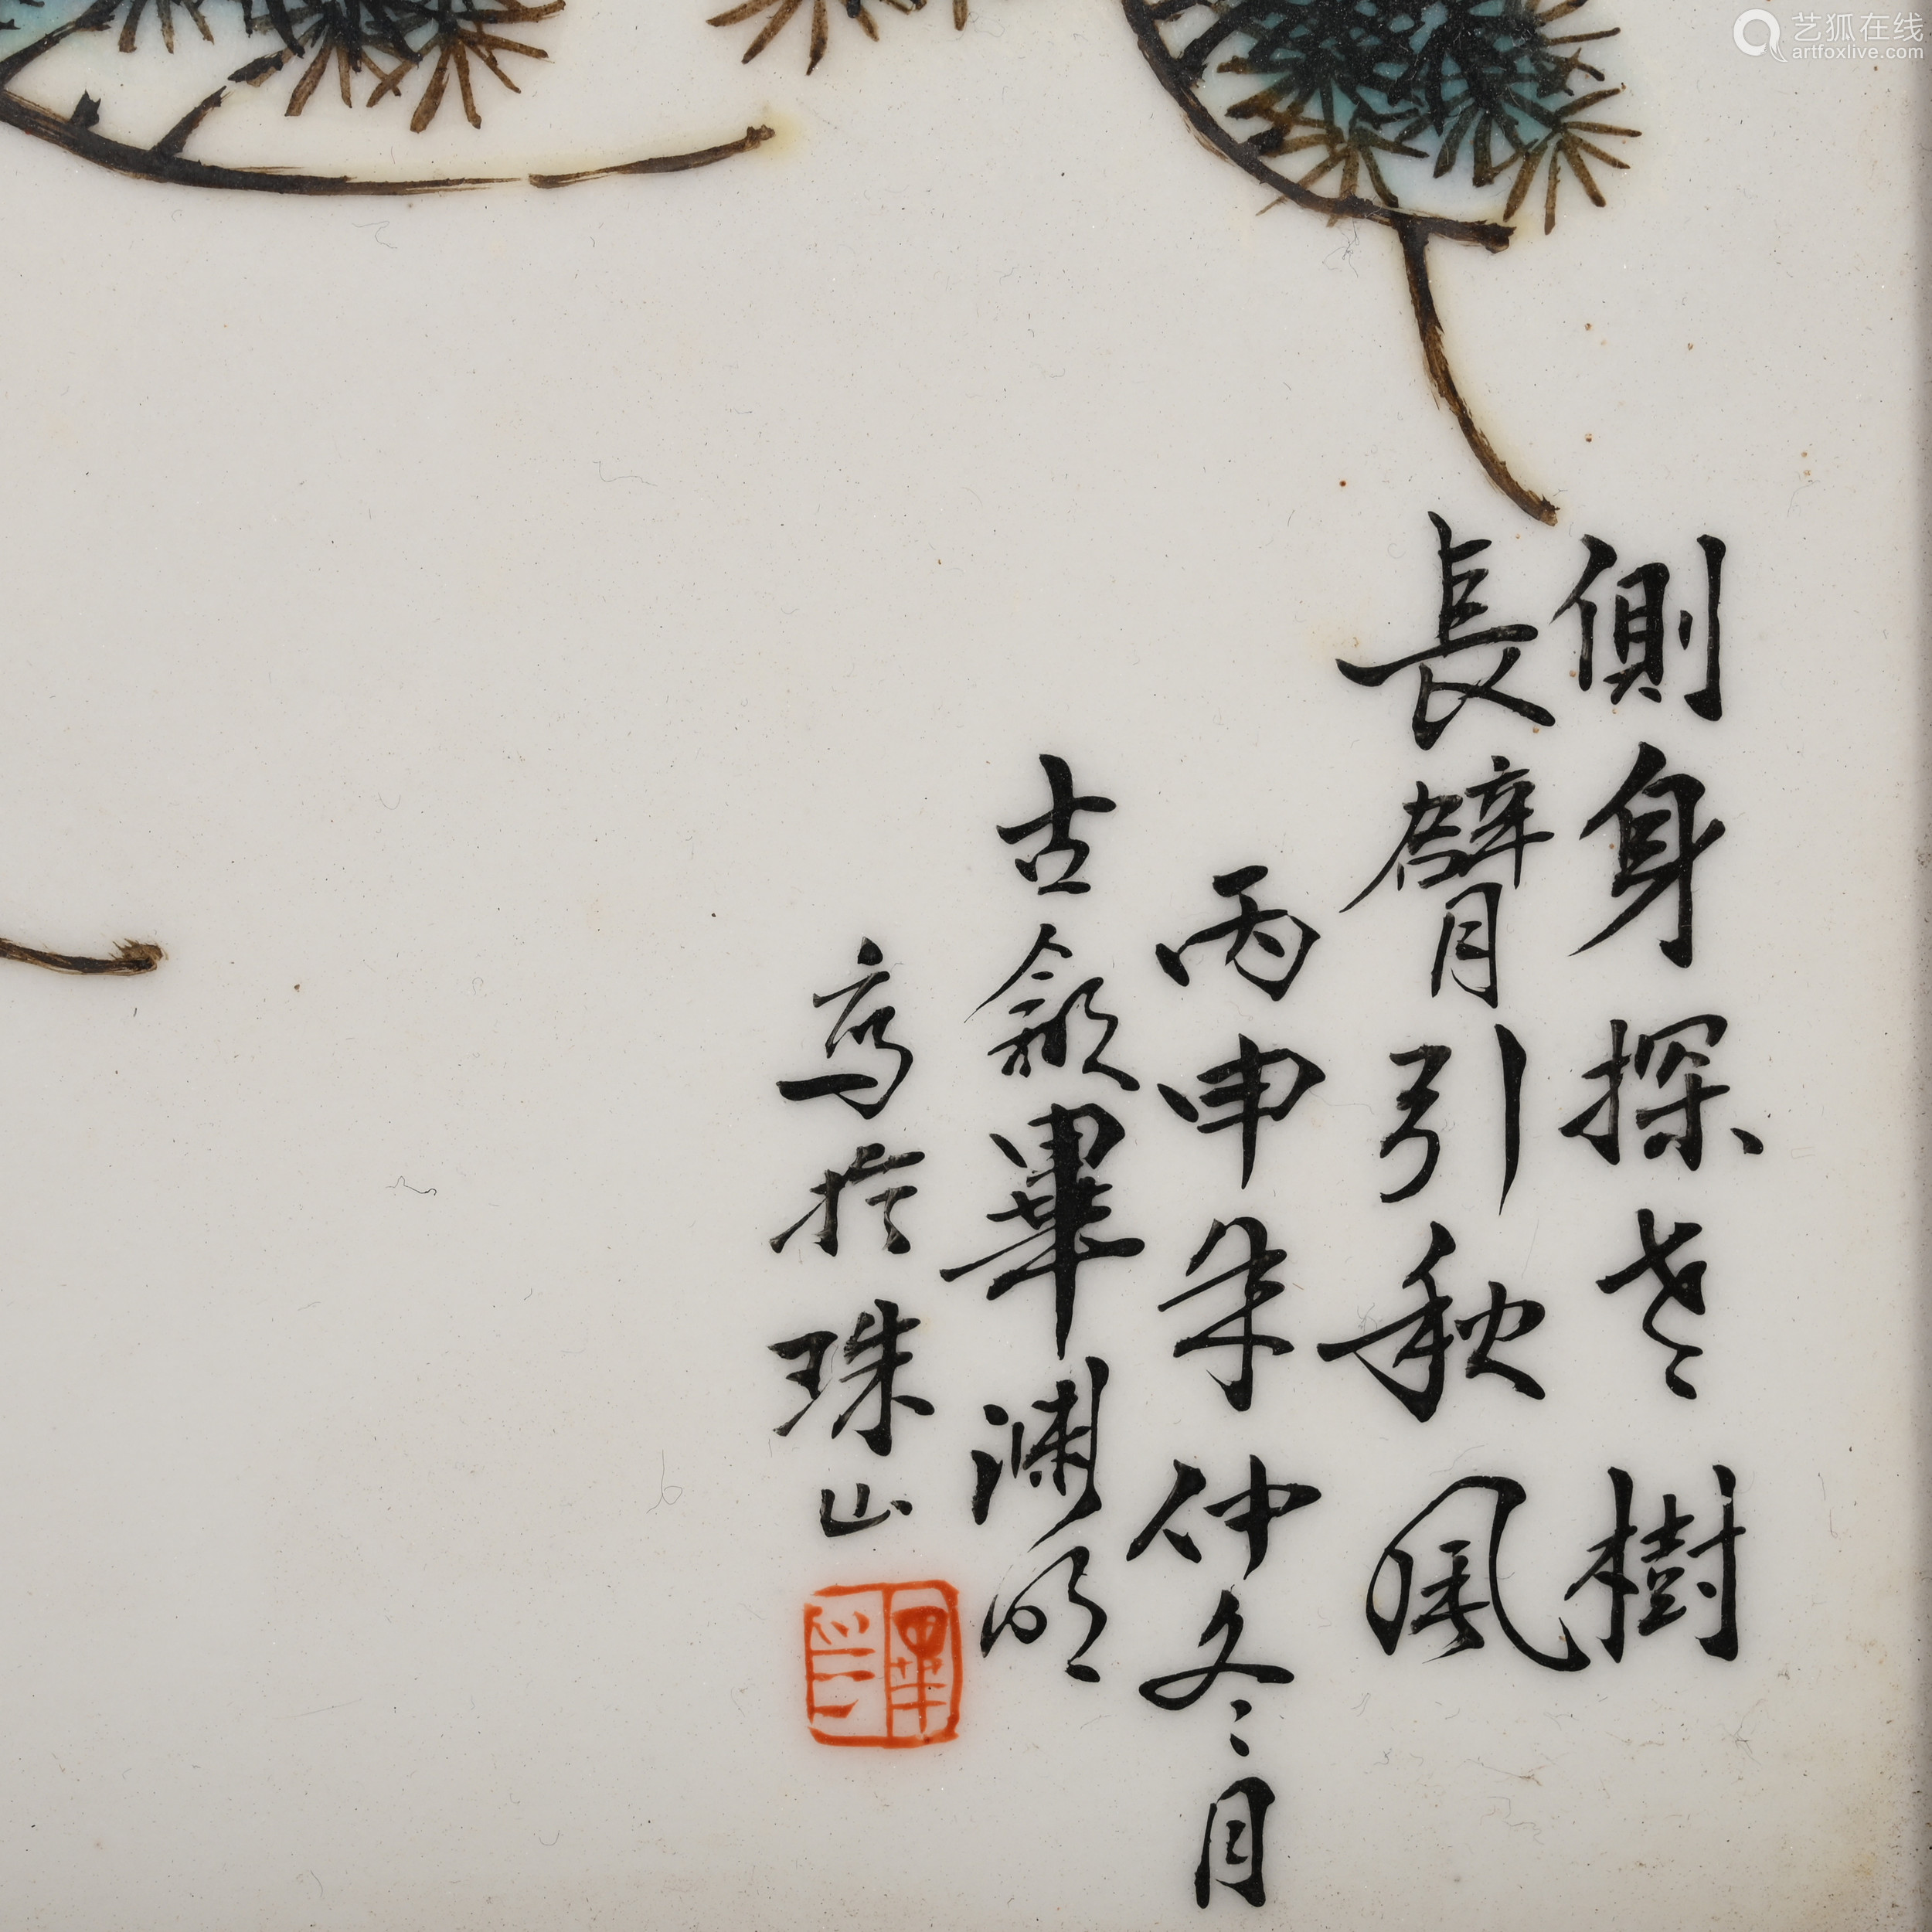 側身探老樹
長臂引秋風
丙申年仲冬月
古歙畢淵明
寫於珠山
畢印
艺狐在线
artfoxlive.com